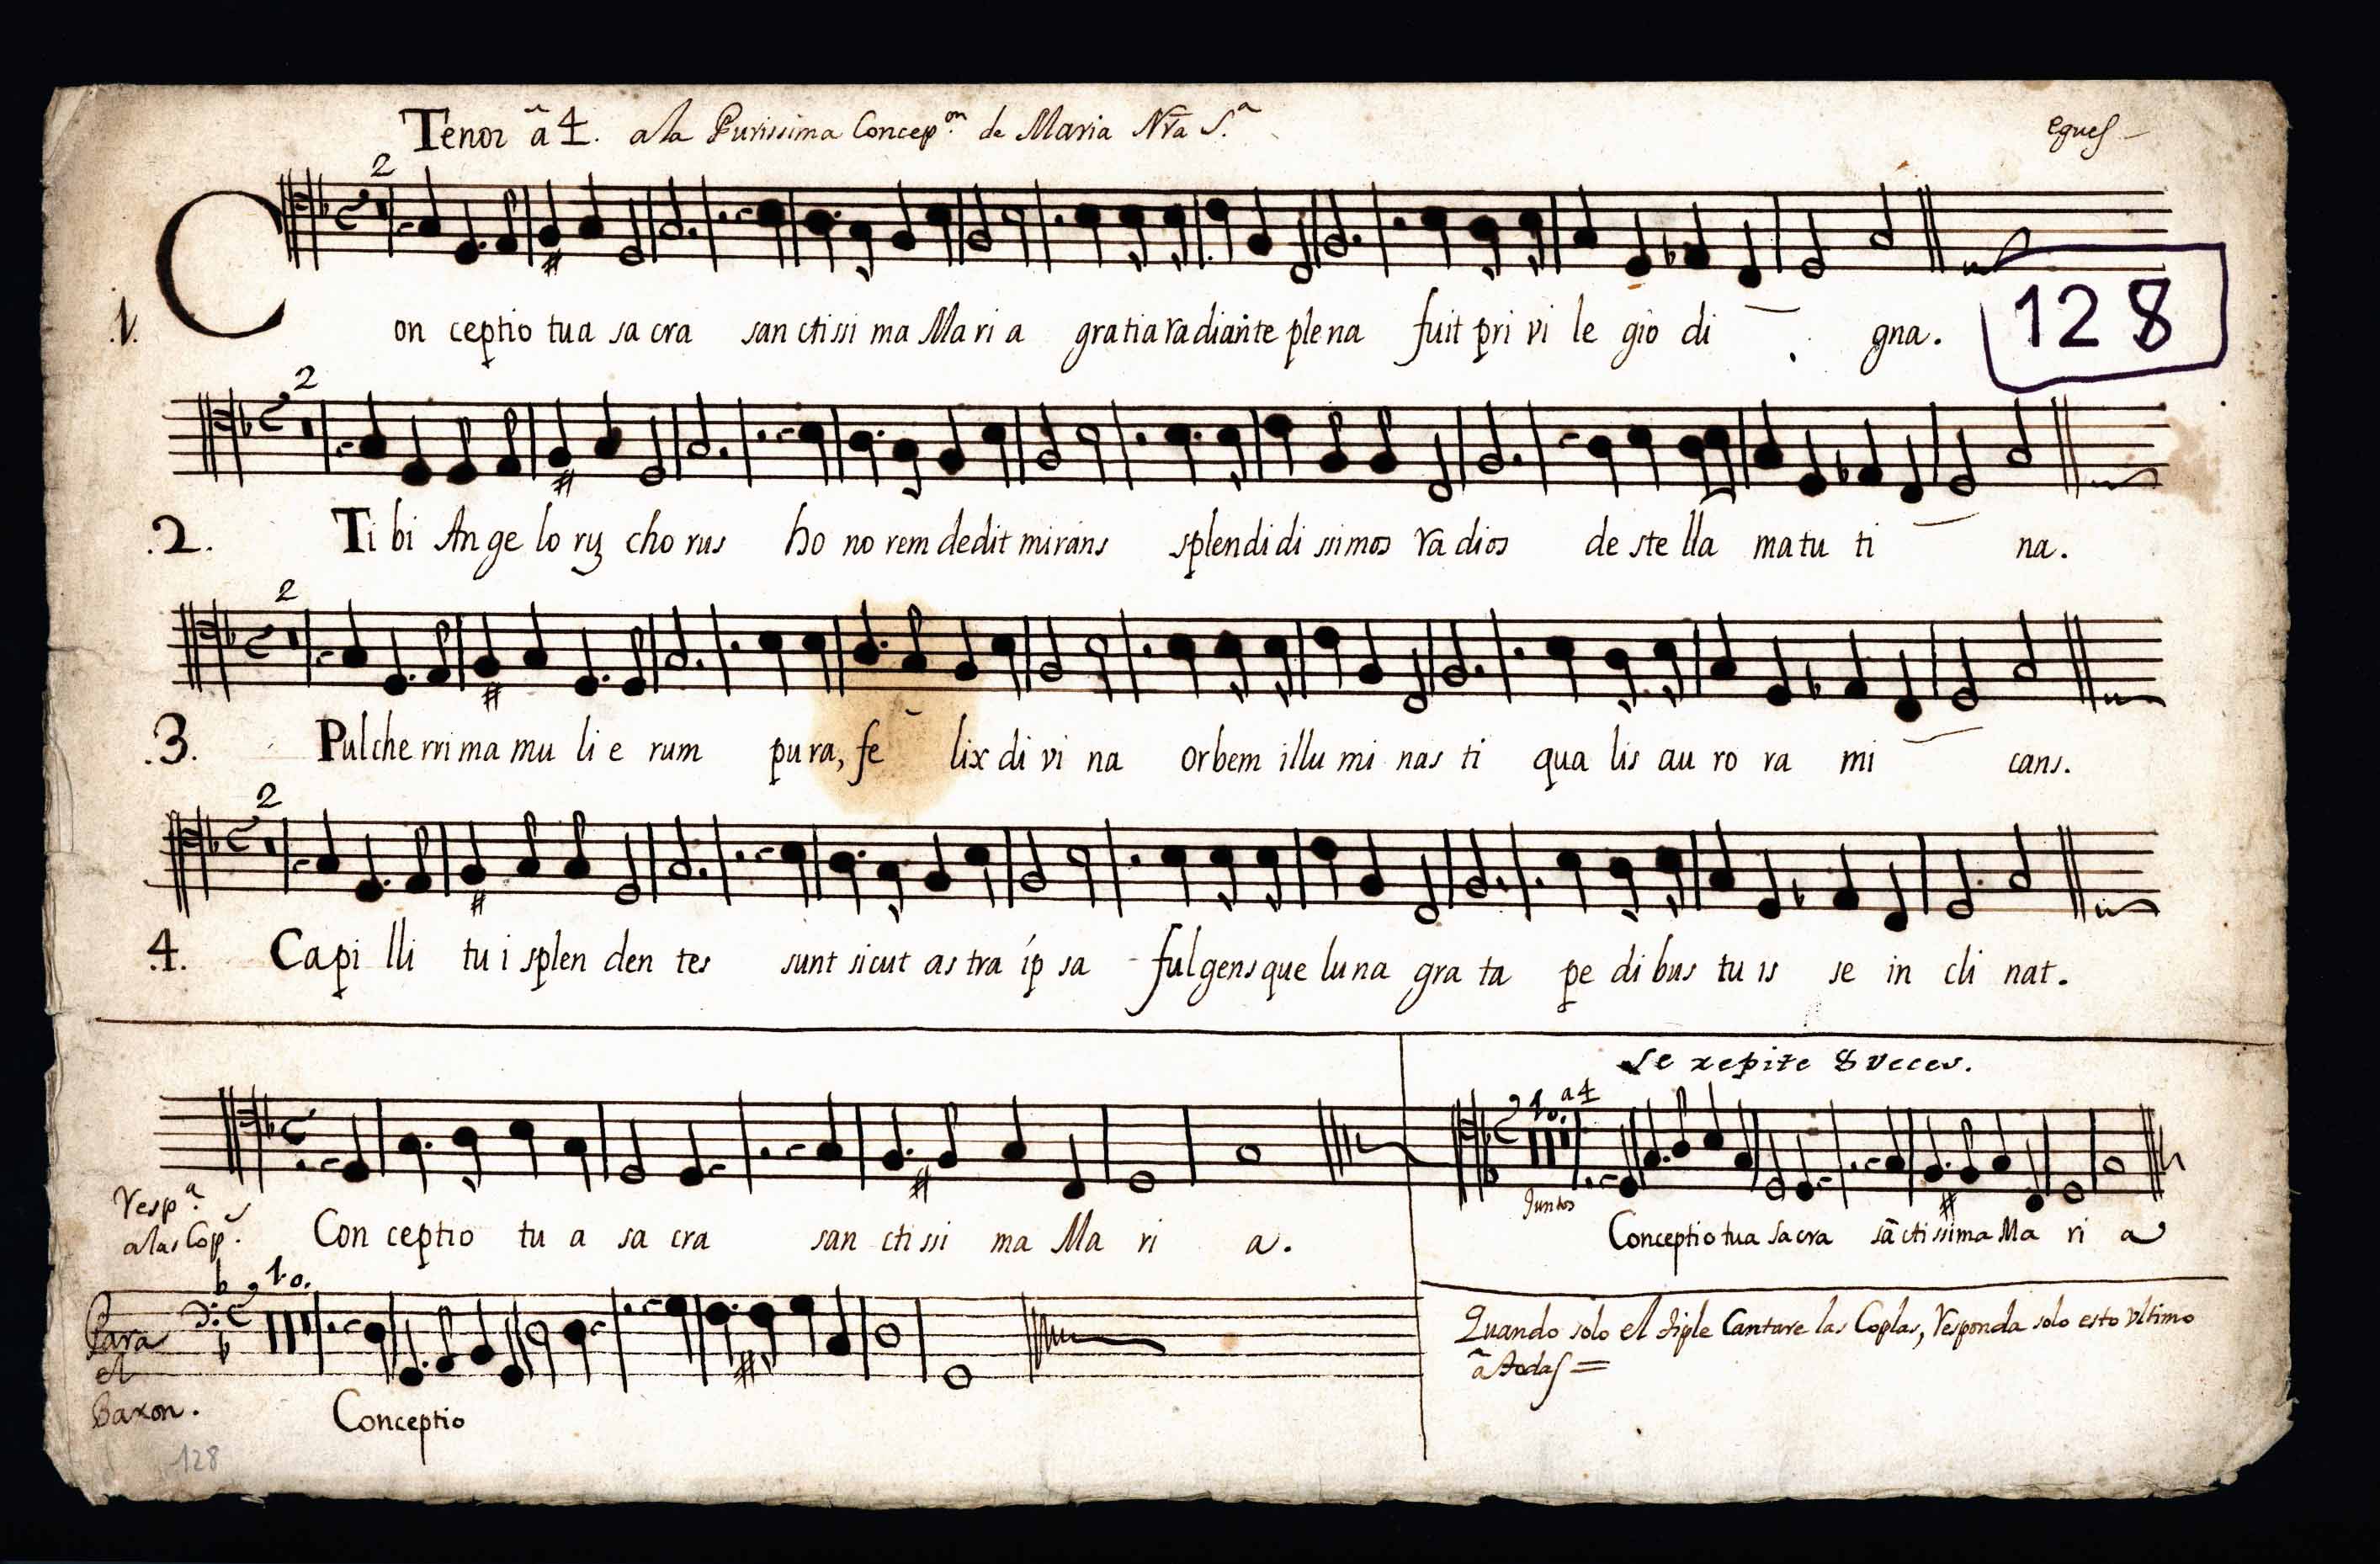 Tenor â 4. a la Purissima Concep.on de Maria Nr̃a S.a
eques
2
128
1. Conceptio tua sa cra san ctissi ma Ma ri a gratia radiante plena fuit pri vi le gio di gna.
2
2. Ti bi An ge lo rũ cho rus ho no rem dedit mirans splendi di ssimos ra dios de ste lla ma tu ti na.
2
3. Pulche rri ma mu li e rum pu ra, fe lix di vi na orbem illu mi nas ti qua lis au ro ra mi cans.
2
4. Capi lli tu i splen den tes sunt sicut as tra ip sa fulgensque luna gra ta pe di bus tu is se in cli nat.
Se repite 8 veces.
10. a 4
Juntos
Resp.a
a las Cop.s
Con ceptio tu a sa cra san cti ssi ma Ma ri a.
Conceptio tua sacra sãctissima Ma ri a
10.
Para
el
Baxon.
Conceptio
Quando solo el tiple Cantare las Coplas, Responda solo esto vltimo
â todas =
128